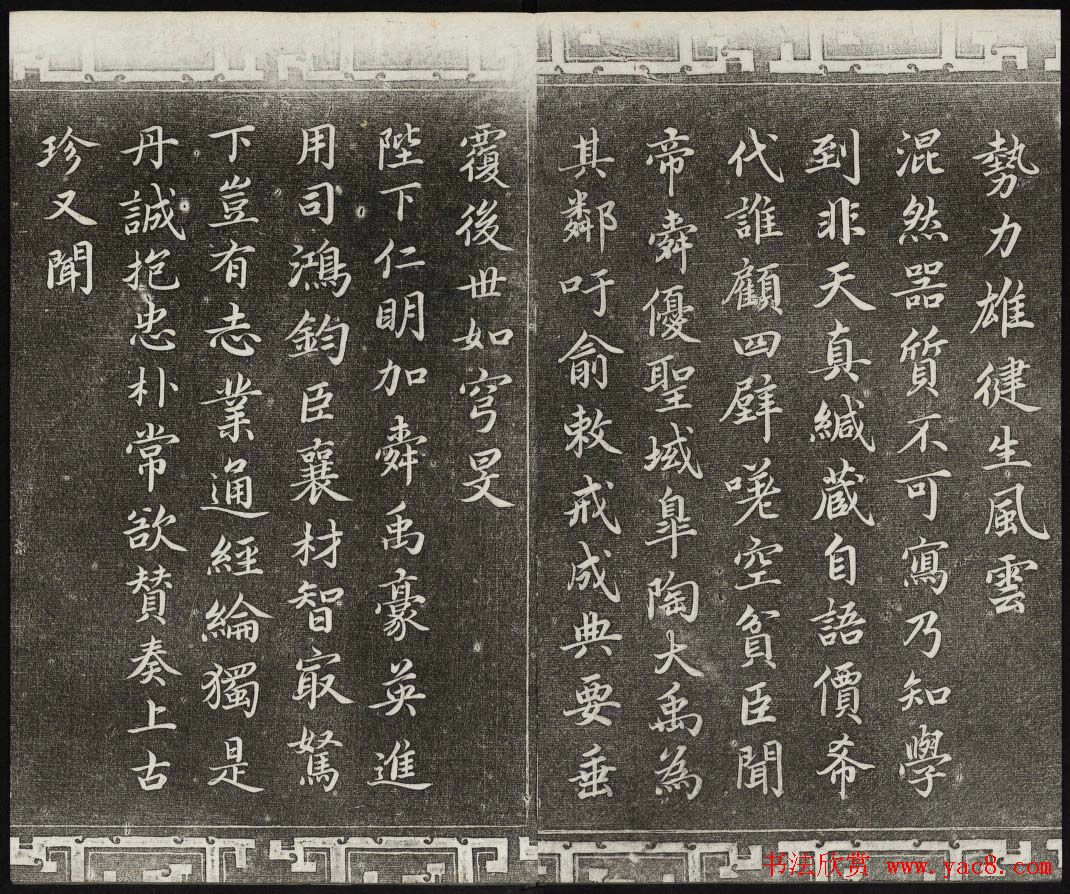 勢力雄健生風雲
混然器質不可寫乃知學
到非天真緘藏自語價希
代誰顧四壁嗟空貧臣聞
帝舜優聖域皐陶大禹為
其鄰吁俞敕戒成典要垂
覆後世如穹旻
陛下仁明加舜禹豪英進
用司鴻鈞臣襄材智㝡駑
下豈有志業通經綸獨是
丹誠抱忠朴常欲賛奏上古
珍又聞
书法欣赏 www.yac8.com